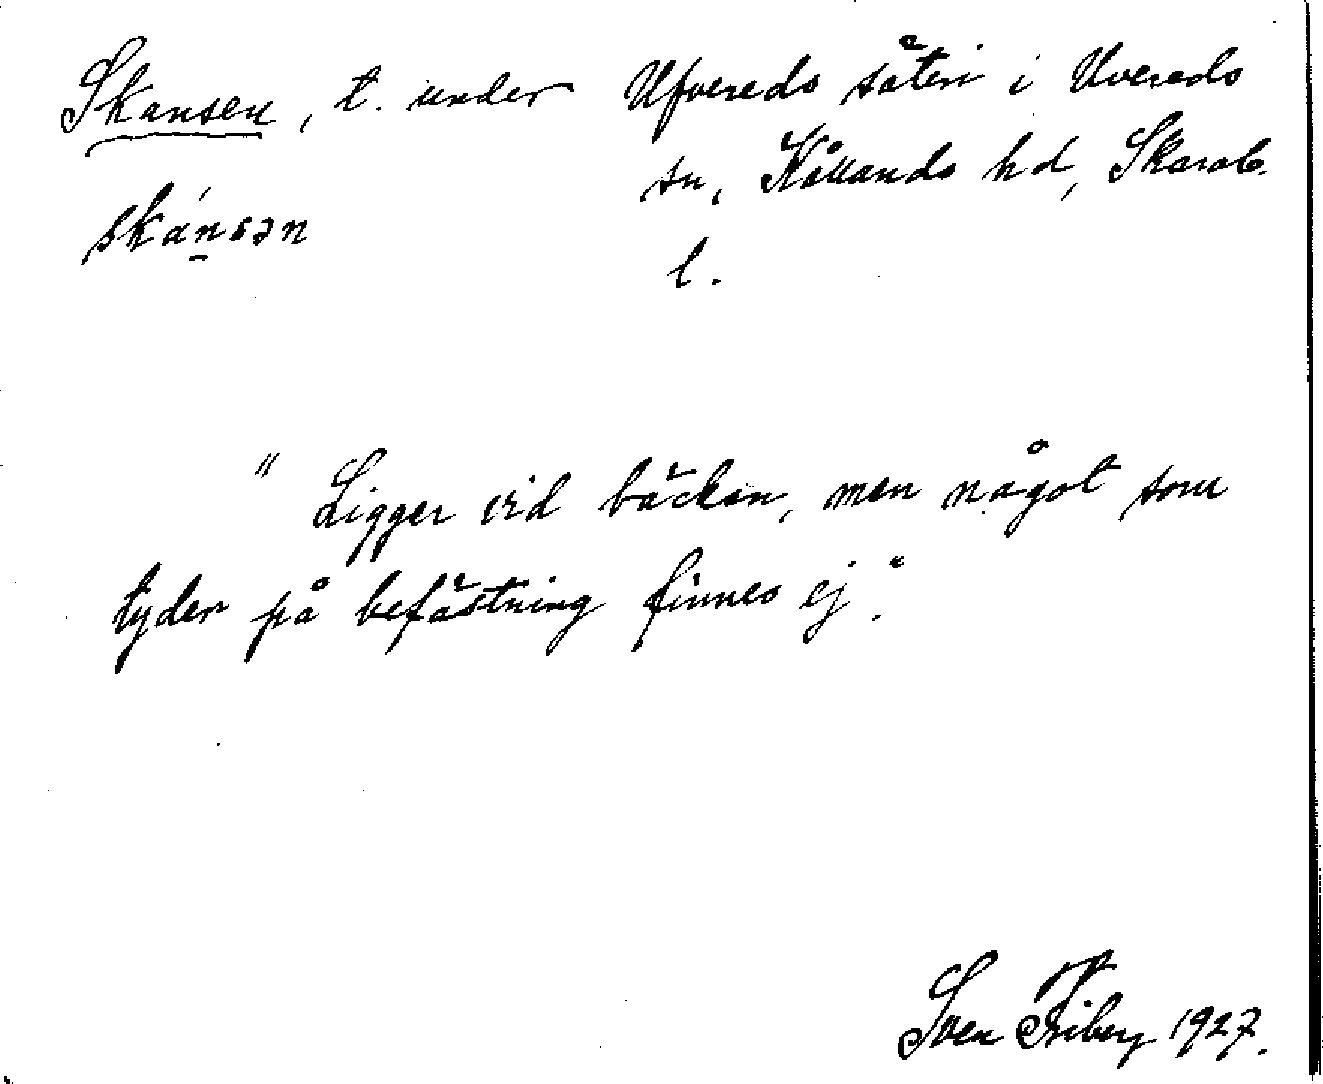 Skansen, t. under Ufvereds säteri i Uvereds
sn, Kållands hd, Skarab.
skánsən
l.
" Ligger vid bäcken, men något som
tyder på befästning finnes ej".
Sven Friberg 1927.